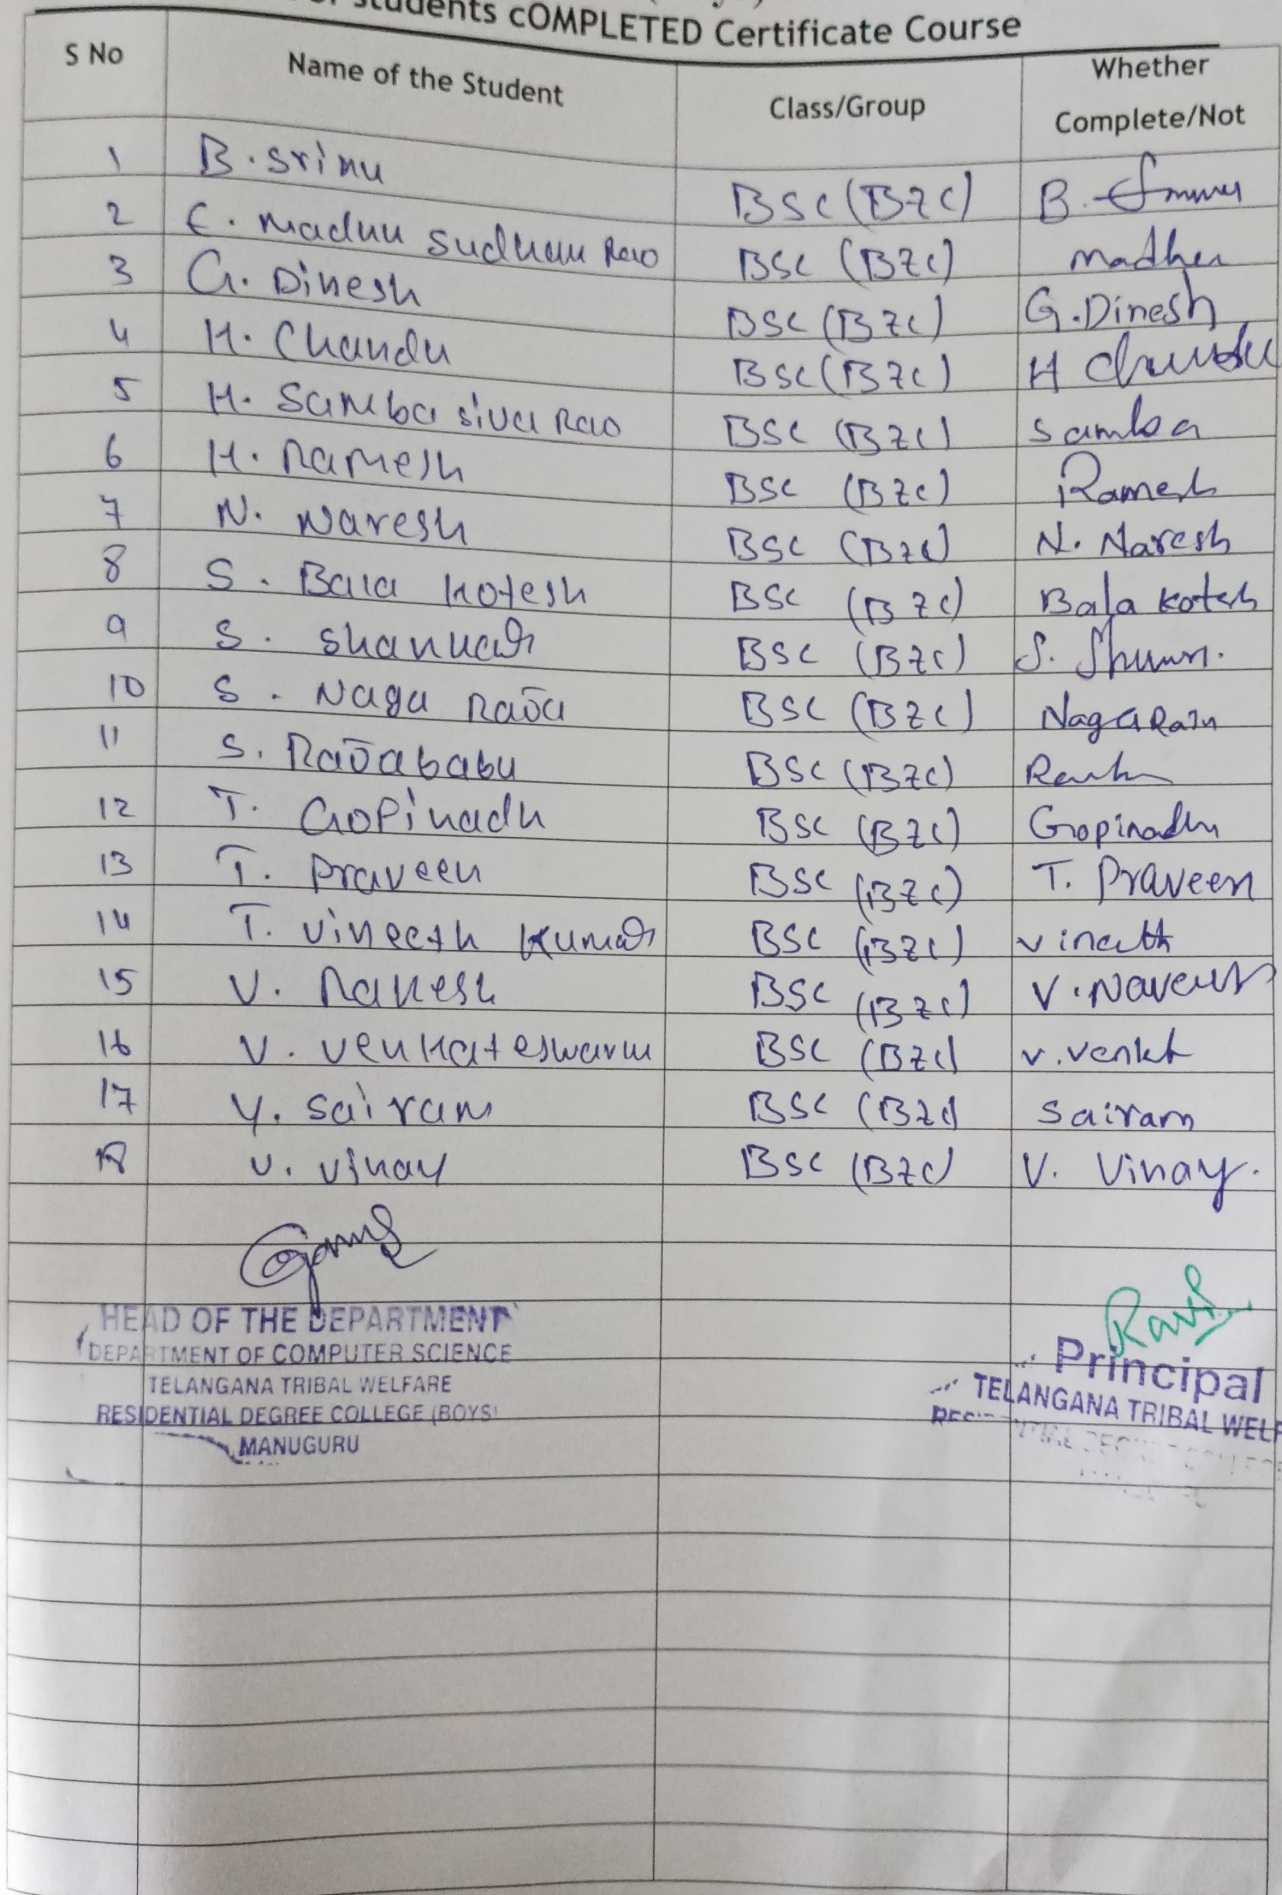 students cOMPLETED Certificate Course
S No Name of the Student Class/Group Whether Complete/Not
1 B. Srinu BSC (BZC) B.
2 E. Madhu Sudhan Rao BSC (BZC) madhu
3 G. Dinesh BSC (BZC) G.Dinesh
4 H. Chandu BSC (BZC) H Chandu
5 H. Samba siva Rao BSC (BZC) samba
6 H. Ramesh BSC (BZC) Ramesh
7 N. Naresh BSC (BZC) N. Naresh
8 S. Bala Kotesh BSC (BZC) Bala kotesh
9 S. Shankar BSC (BZC) S.
10 S. Naga Raju BSC (BZC) NagaRaju
11 S. Rajababu BSC (BZC)
12 T. Gopinadh BSC (BZC) Gopinadh
13 T. Praveen BSC (BZC) T. Praveen
14 T. Vineeth Kumar BSC (BZC) vineeth
15 V. Rakesh BSC (BZC) V.
16 V. Venkateswarlu BSC (BZC) v.venkt
17 Y. Sairam BSC (BZC) Sairam
18 V. Vinay BSC (BZC) V. Vinay.
HEAD OF THE DEPARTMENT
DEPARTMENT OF COMPUTER SCIENCE
TELANGANA TRIBAL WELFARE
RESIDENTIAL DEGREE COLLEGE (BOYS)
MANUGURU
Ravi
Principal
TELANGANA TRIBAL WELF